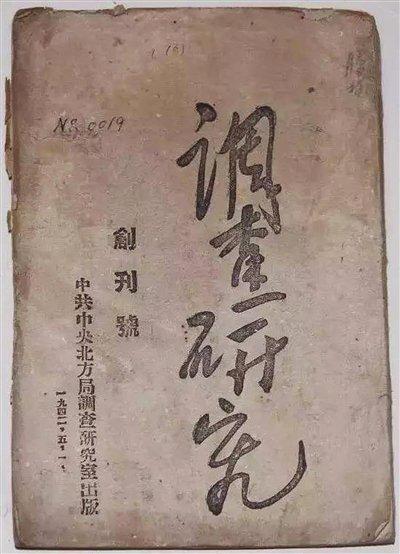 调查研究
№ 0019
創刊號
中共中央北方局調查研究室出版
一九四二·五·一·